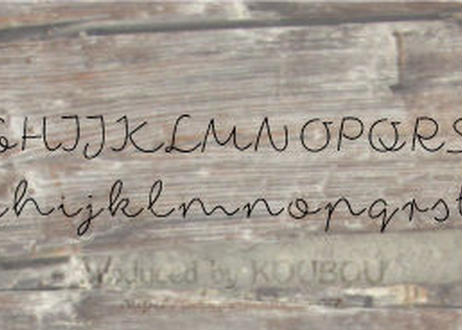 GHIJJKLMNOPQRS
hijklmnopqrst
Produced by KOUBOU